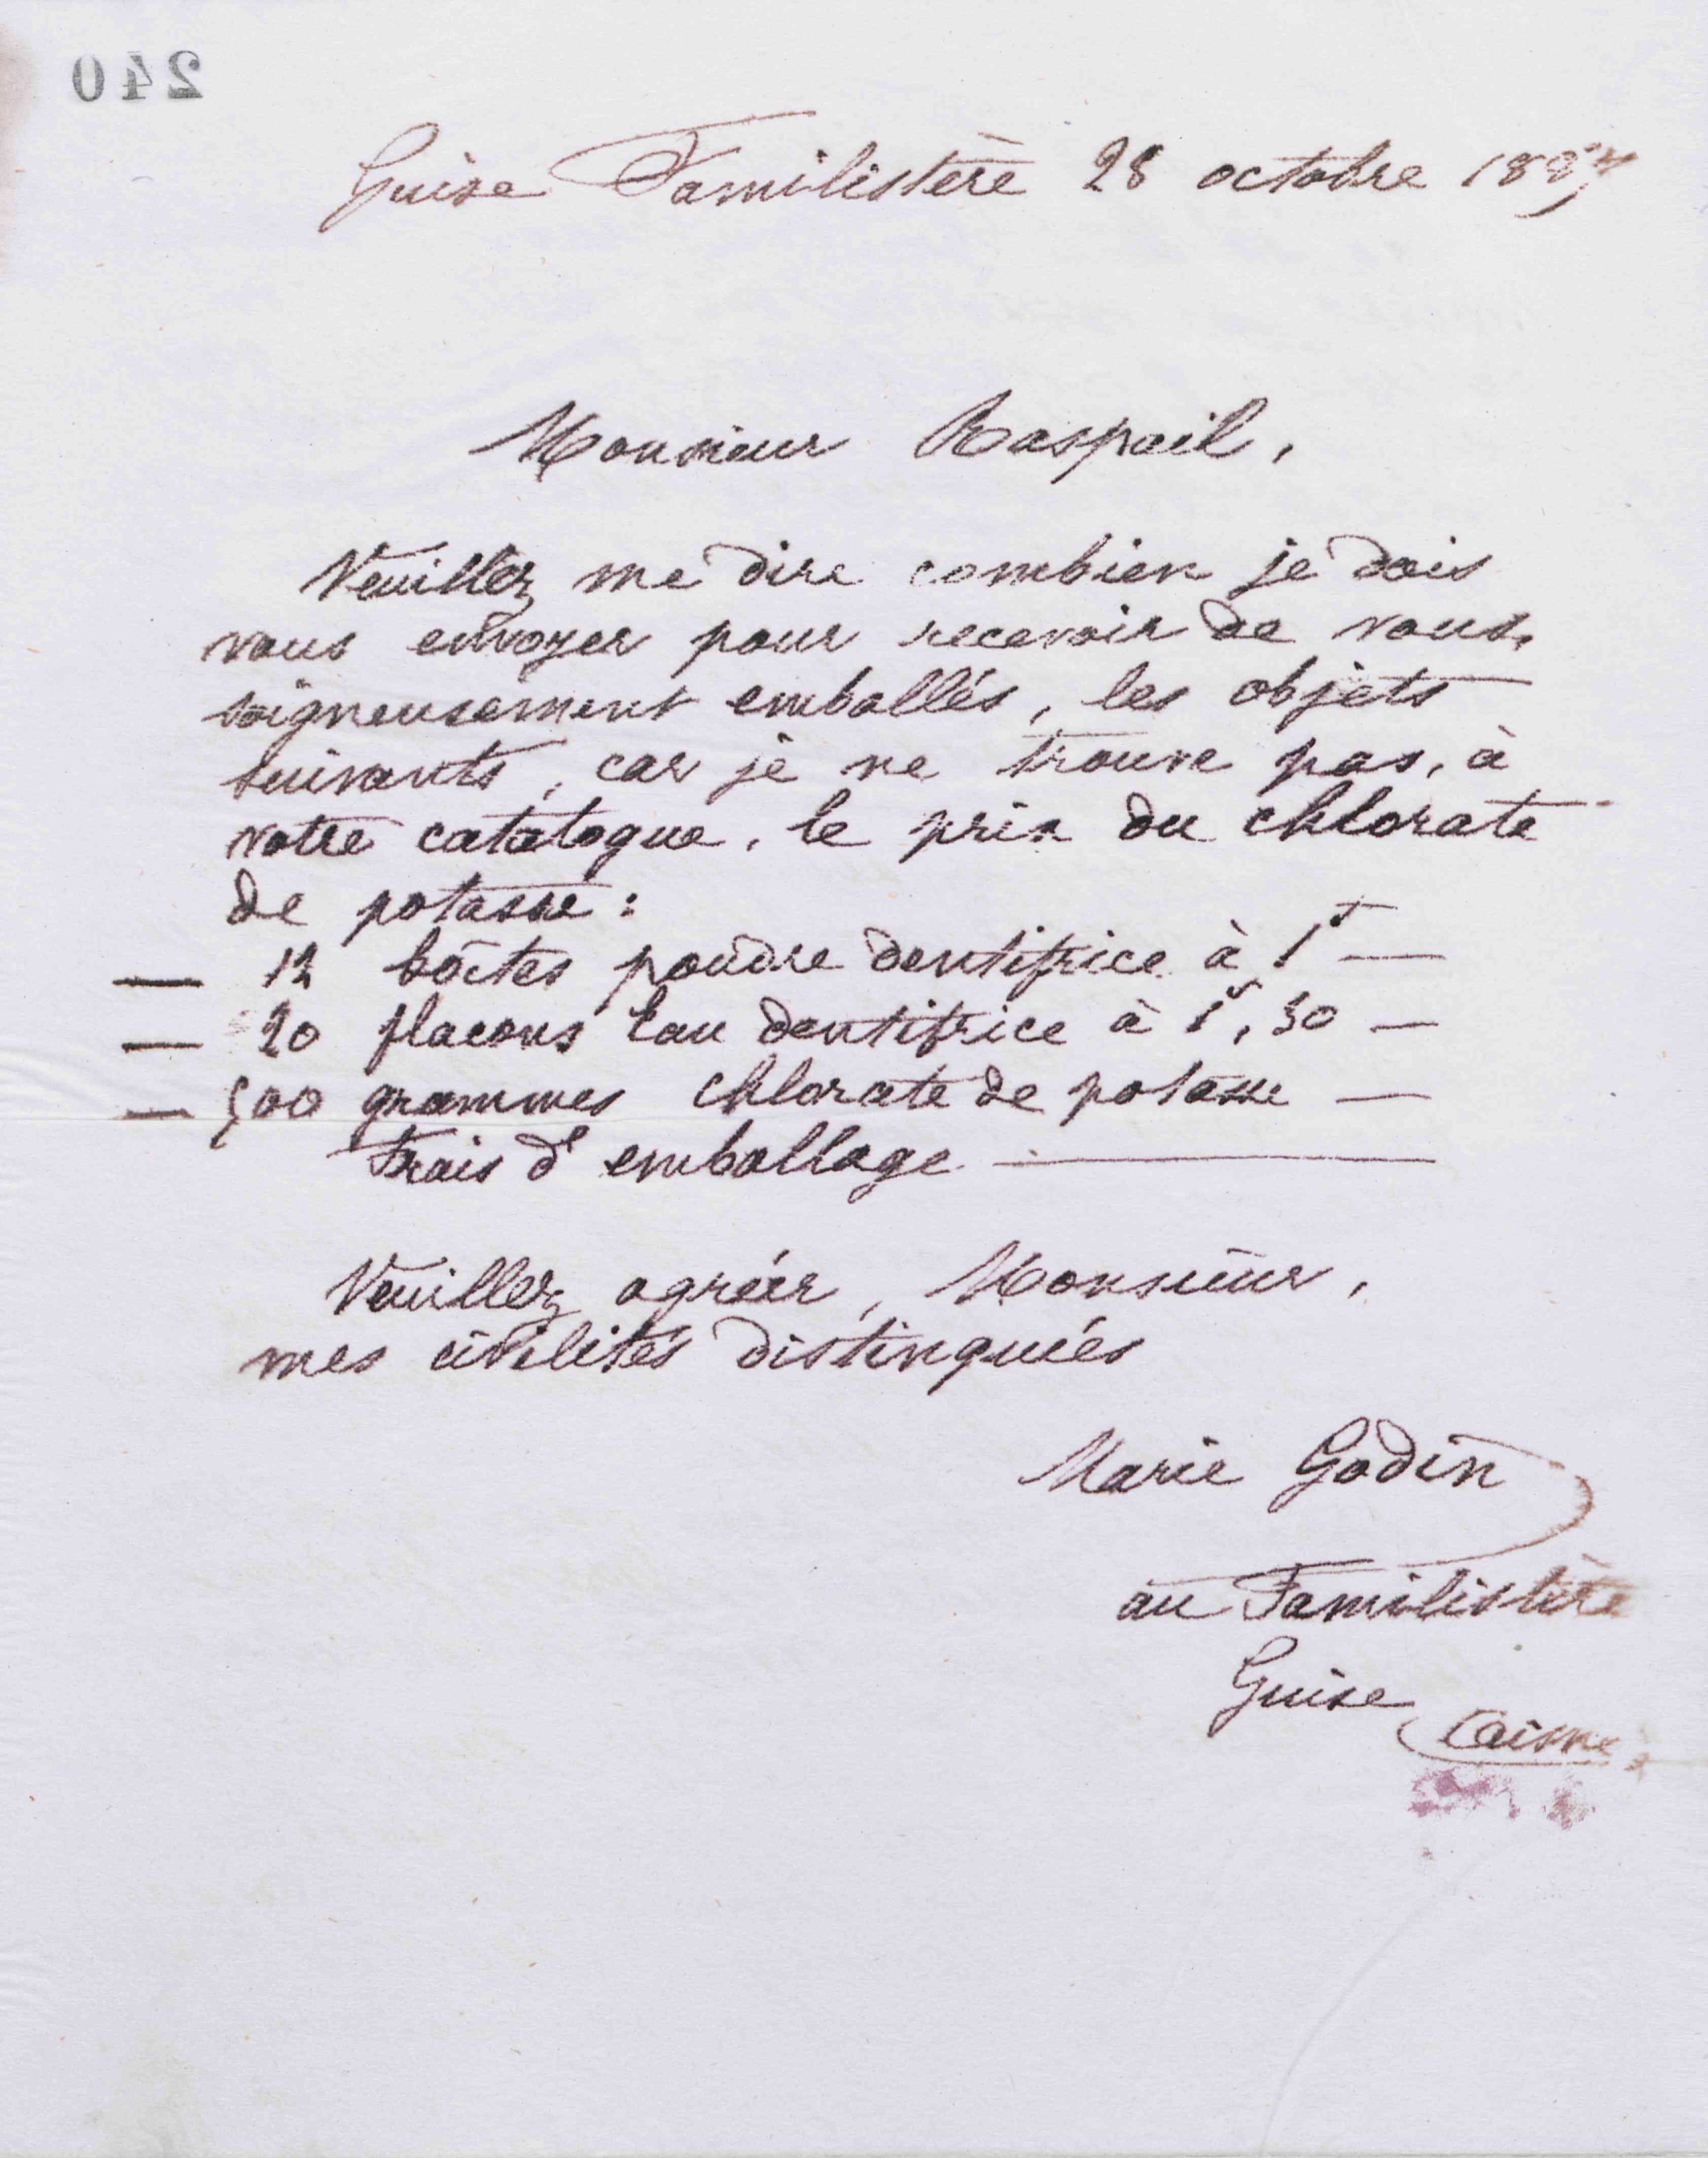 240
Guise Familistère 28 octobre 189
Monsieur Raspail,
Veuillez me dire combien je dois
vous envoyer pour recevoir de vous,
soigneusement emballés, les objets
suivants, car je ne trouve pas, à
votre catalogue, le prix du chlorate
de potasse :
— 12 boîtes poudre dentifrice à 1f —
— 20 flacons Eau dentifrice à 1f, 50 —
— 500 grammes chlorate de potasse —
Frais d'emballage —
Veuillez agréer, Monsieur,
mes civilités distinguées
Marie Godin
au Familistère
Guise
(Aisne)